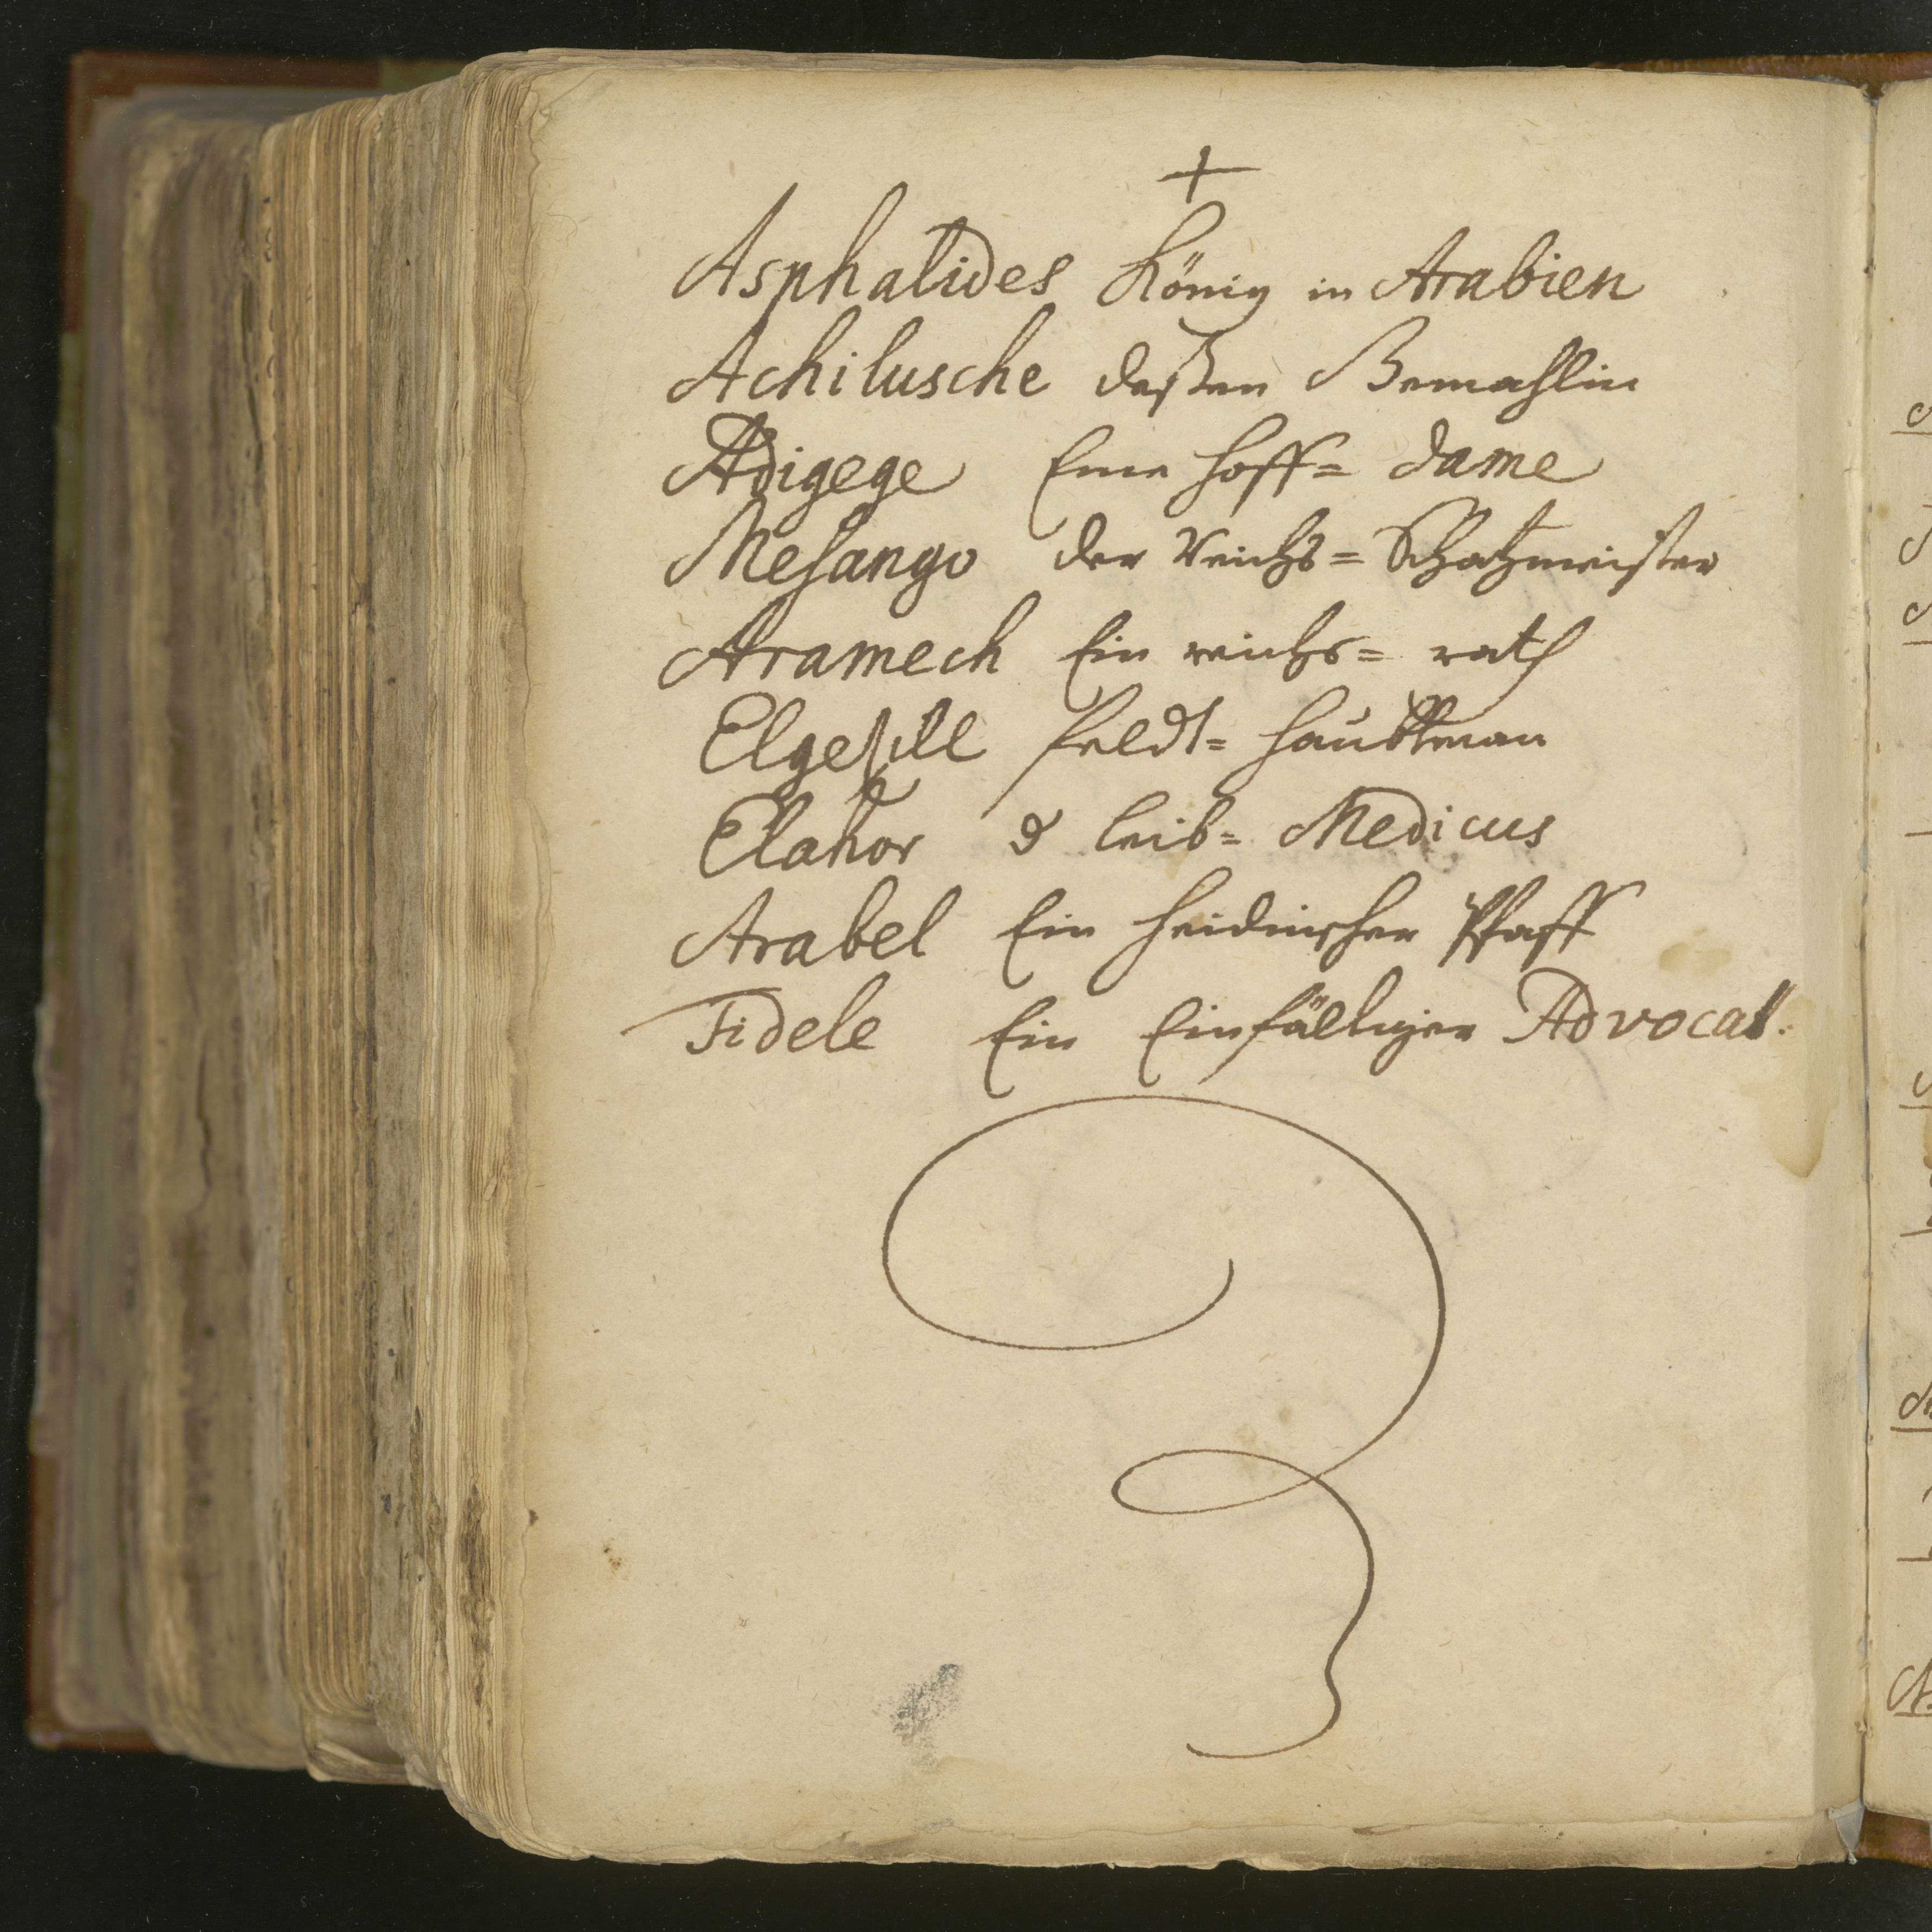 +
Asphalides König in Arabien
Achilusche deßen Gemahlin
Adigege Eine hoff= dame
Mesango der Reichs= Schatzmeister
Aramech Ein reichs= rath
Elgesill feldt= haubtman
Elahor d leib= Medicus
Arabel Ein heidnischer Pfaff
Fidele Ein Einfältiger Advocat.